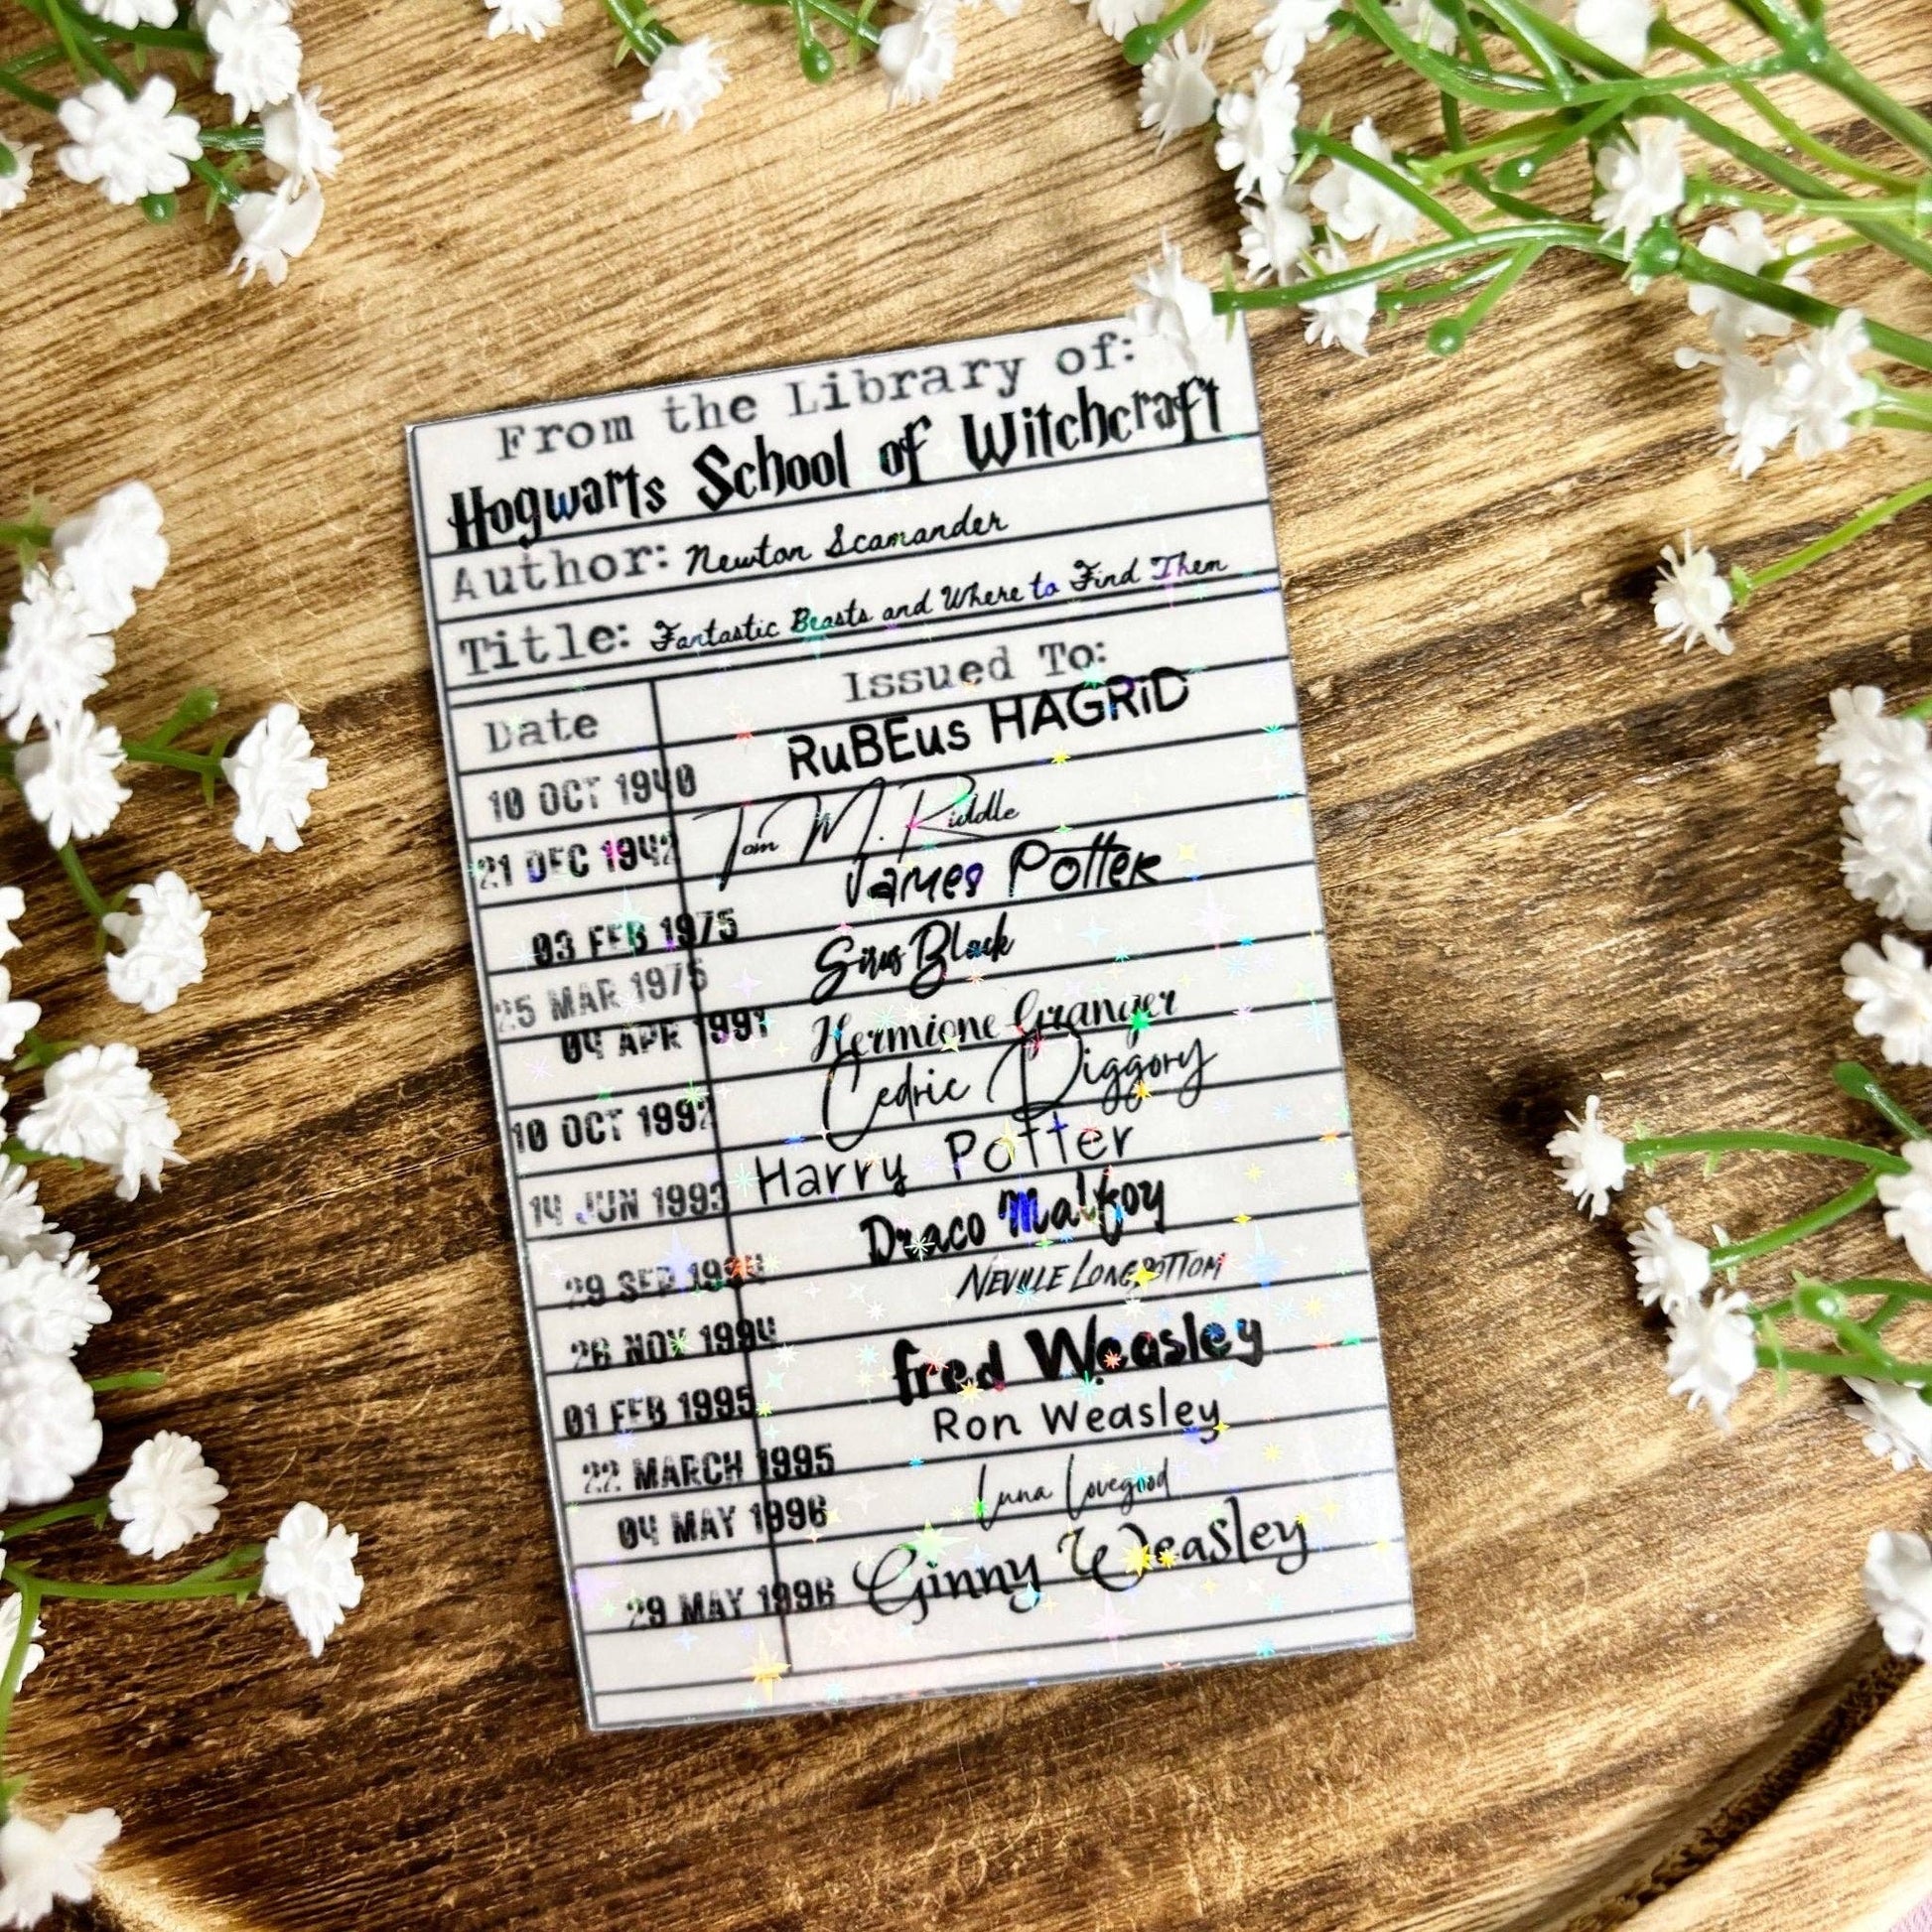 From the Library of:
Hogwarts School of Witchcraft
Author: Newton Scamander
Title: Fantastic Beasts and Where to Find Them
Date Issued To:
10 OCT 1940 RuBEus HAGRiD
21 DEC 1942 Tom M. Riddle
03 FEB 1975 James Potter
25 MAR 1975 Sirius Black
04 APR 1991 Hermione Granger
10 OCT 1992 Cedric Diggory
14 JUN 1993 Harry Potter
29 SEP 1994 Draco Malfoy
26 NOV 1994 NEVILLE LONGBOTTOM
01 FEB 1995 fred Weasley
22 MARCH 1995 Ron Weasley
04 MAY 1996 Luna Lovegood
29 MAY 1996 Ginny Weasley